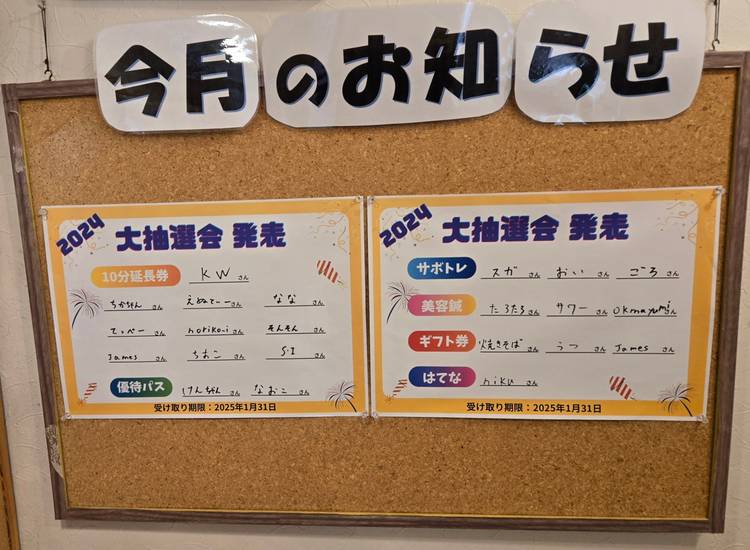 今月のお知らせ
2024
大抽選会 発表
10分延長券 KWさん
ちかちゃんさん えぬてーーさん ななさん
てっぺーさん noriko.iさん そんそんさん
Jamesさん ちおこさん S.Iさん
優待パス けんちゃんさん なおこさん
受け取り期限：2025年1月31日
2024
大抽選会 発表
サボトレ スガさん おいさん ごろさん
美容鍼 たろたろさん サワーさん Okmayumiさん
ギフト券 焼きそばさん うっさん Jamesさん
はてな nikuさん
受け取り期限：2025年1月31日